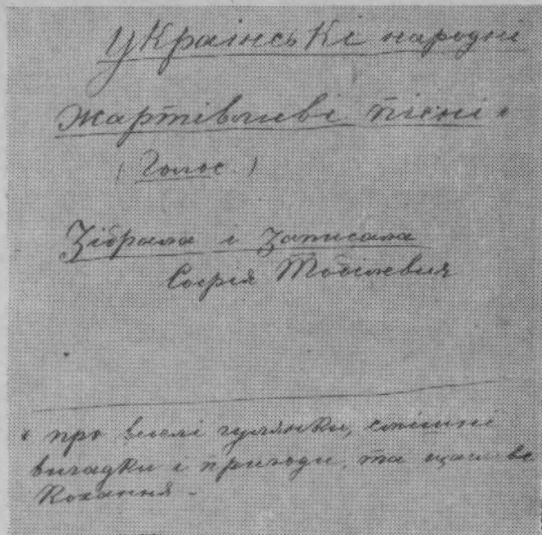 Українські народні
жартівливі пісні *
(Голос.)
Зібрала і записала
Софія Тобілевич
* про веселі гулянки, смішні
випадки і пригоди, та щасливе
кохання.